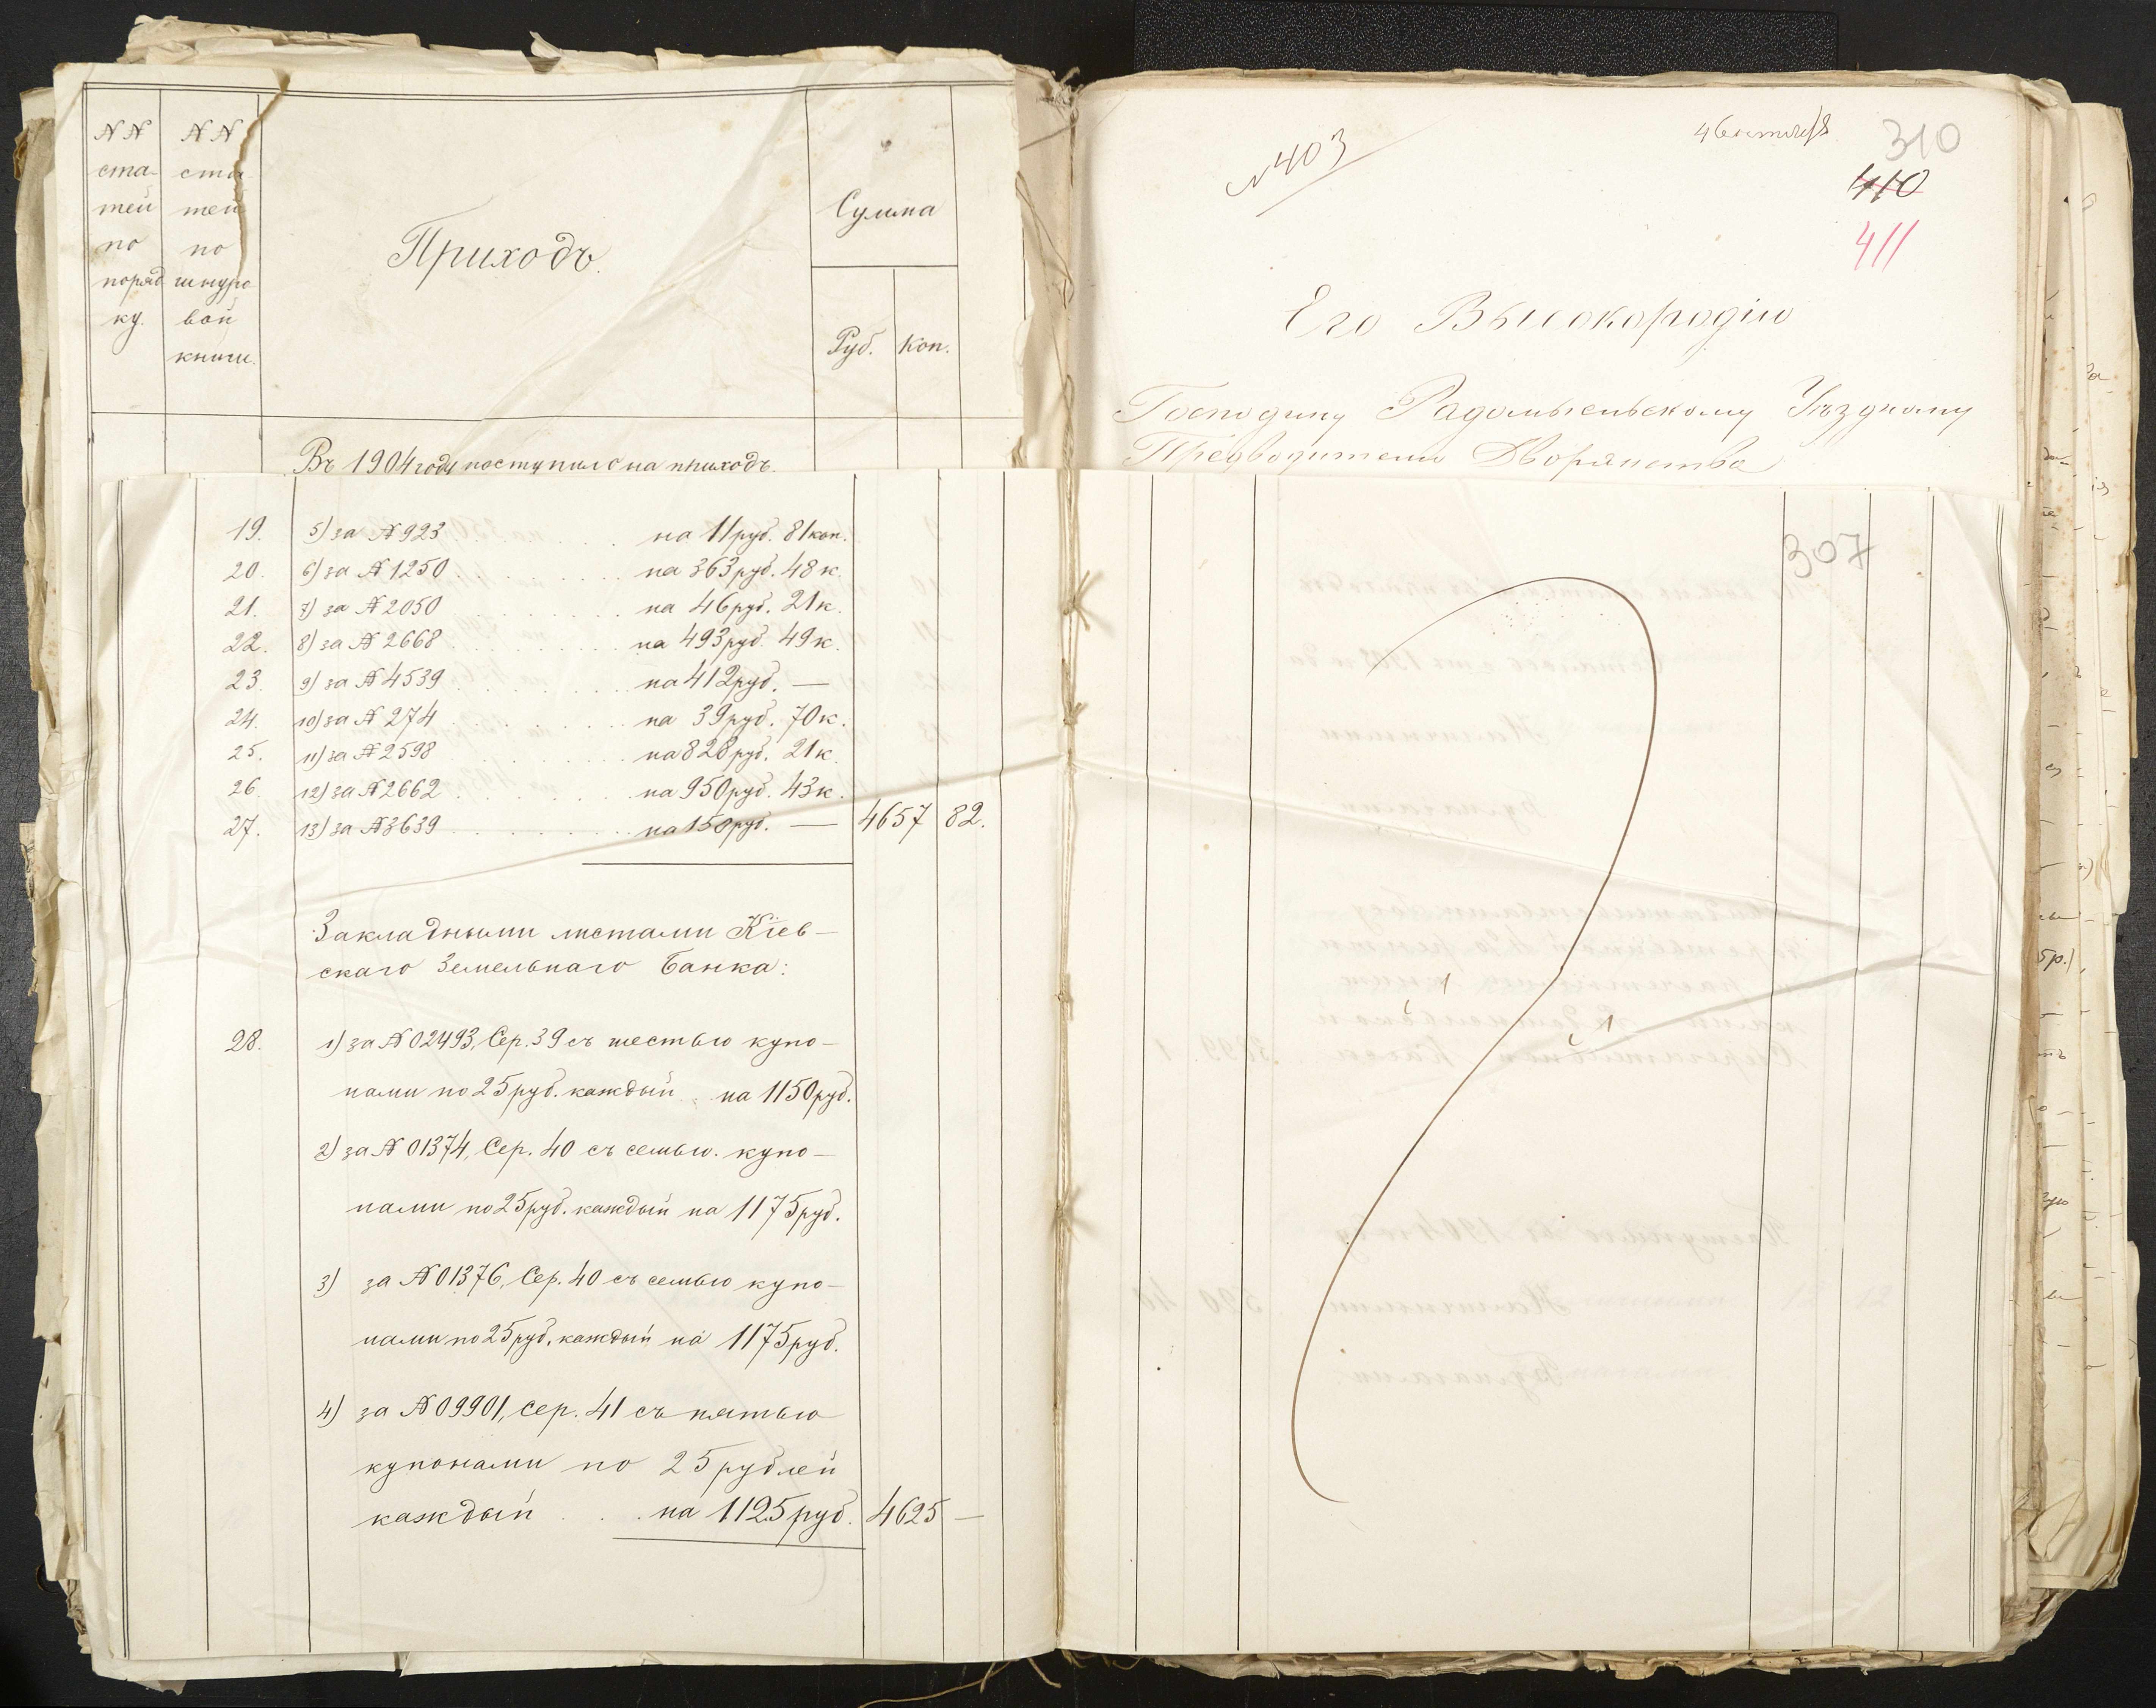 №№ ста- тей по поряд ку.
№№ ста- тей по шнуро вой книги.
Приходъ.
Сумма
Руб. Коп.
Въ 1904 году поступило на приходъ.
19. 5) за № 923 . . . на 11 руб. 81 коп.
20. 6) за № 1250 . . . на 363 руб. 48 к.
21. 7) за № 2050 . . . на 46 руб. 21 к.
22. 8) за № 2668 . . . на 493 руб. 49 к.
23. 9) за № 4539 . . . на 412 руб. —
24. 10) за № 274 . . . на 39 руб. 70 к.
25. 11) за № 2598 . . . на 828 руб. 21 к.
26. 12) за № 2662 . . . на 950 руб. 43 к.
27. 13) за № 3639 . . . на 150 руб. — 4657 82.
Закладными листами Кіев-
скаго Земельнаго Банка:
28. 1) за № 02493, Сер. 39 съ шестью купо-
нами по 25 руб. каждый на 1150 руб.
2) за № 01374, Сер. 40 съ семью купо-
нами по 25 руб. каждый на 1175 руб.
3) за № 01376, Сер. 40 съ семью купо-
нами по 25 руб. каждый на 1175 руб.
4) за № 09901, Сер. 41 съ пятью
купонами по 25 рублей
каждый . . . на 1125 руб. 4625 —
№ 403
310
410
411
Его Высокородію
Господину Радомысльскому Уѣздному
Предводителю Дворянства
307